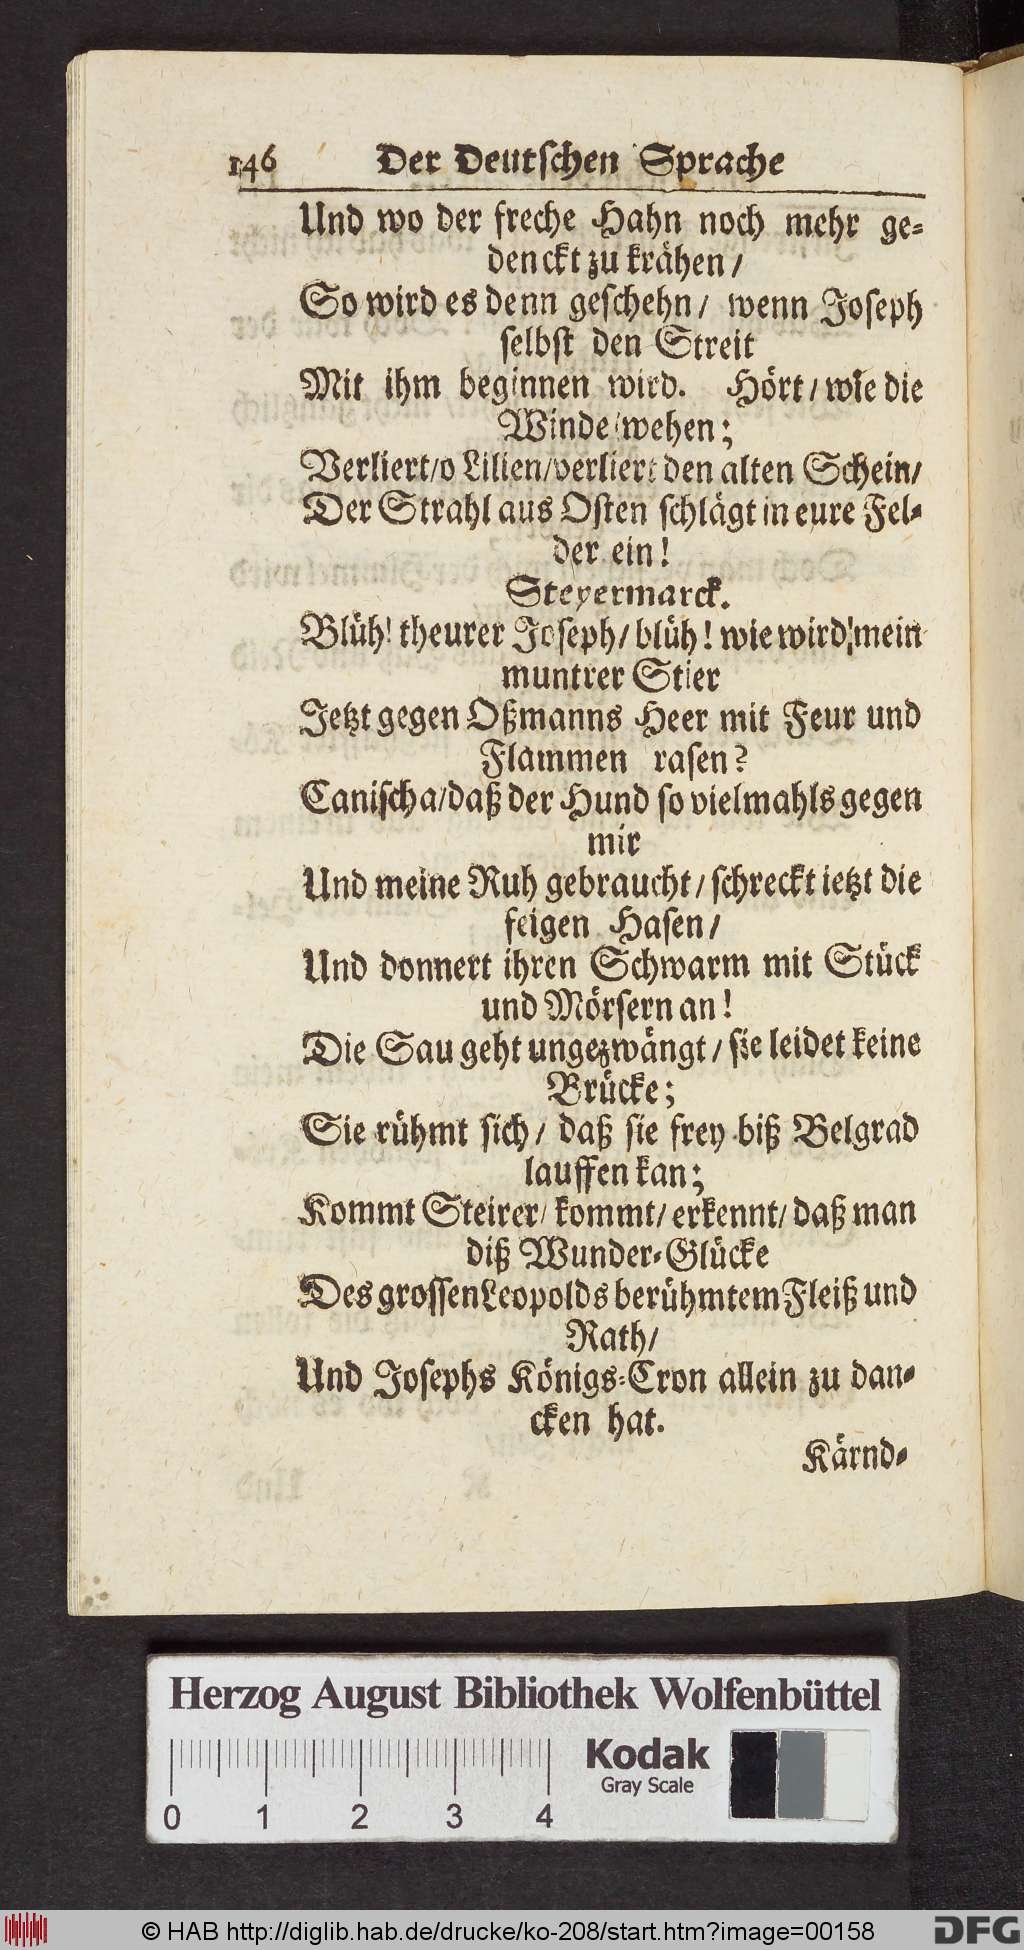 146 Der Deutschen Sprache
Und wo der freche Hahn noch mehr ge-
denckt zu krähen/
So wird es denn geschehn/ wenn Joseph
selbst den Streit
Mit ihm beginnen wird. Hört/ wie die
Winde wehen;
Verliert/o Lilien/verliert den alten Schein/
Der Strahl aus Osten schlägt in eure Fel-
der ein!
Steyermarck.
Blüh! theurer Joseph/ blüh! wie wird mein
muntrer Stier
Jetzt gegen Oßmanns Heer mit Feur und
Flammen rasen?
Canischa/daß der Hund so vielmahls gegen
mir
Und meine Ruh gebraucht/ schreckt ietzt die
feigen Hasen/
Und donnert ihren Schwarm mit Stück
und Mörsern an!
Die Sau geht ungezwängt/ sie leidet keine
Brücke;
Sie rühmt sich/ daß sie frey biß Belgrad
lauffen kan;
Kommt Steirer/ kommt/ erkennt/ daß man
diß Wunder-Glücke
Des grossen Leopolds berühmtem Fleiß und
Rath/
Und Josephs Königs-Cron allein zu dan-
cken hat.
Kärnd-
Herzog August Bibliothek Wolfenbüttel
Kodak
Gray Scale
0 1 2 3 4
© HAB http://diglib.hab.de/drucke/ko-208/start.htm?image=00158
DFG